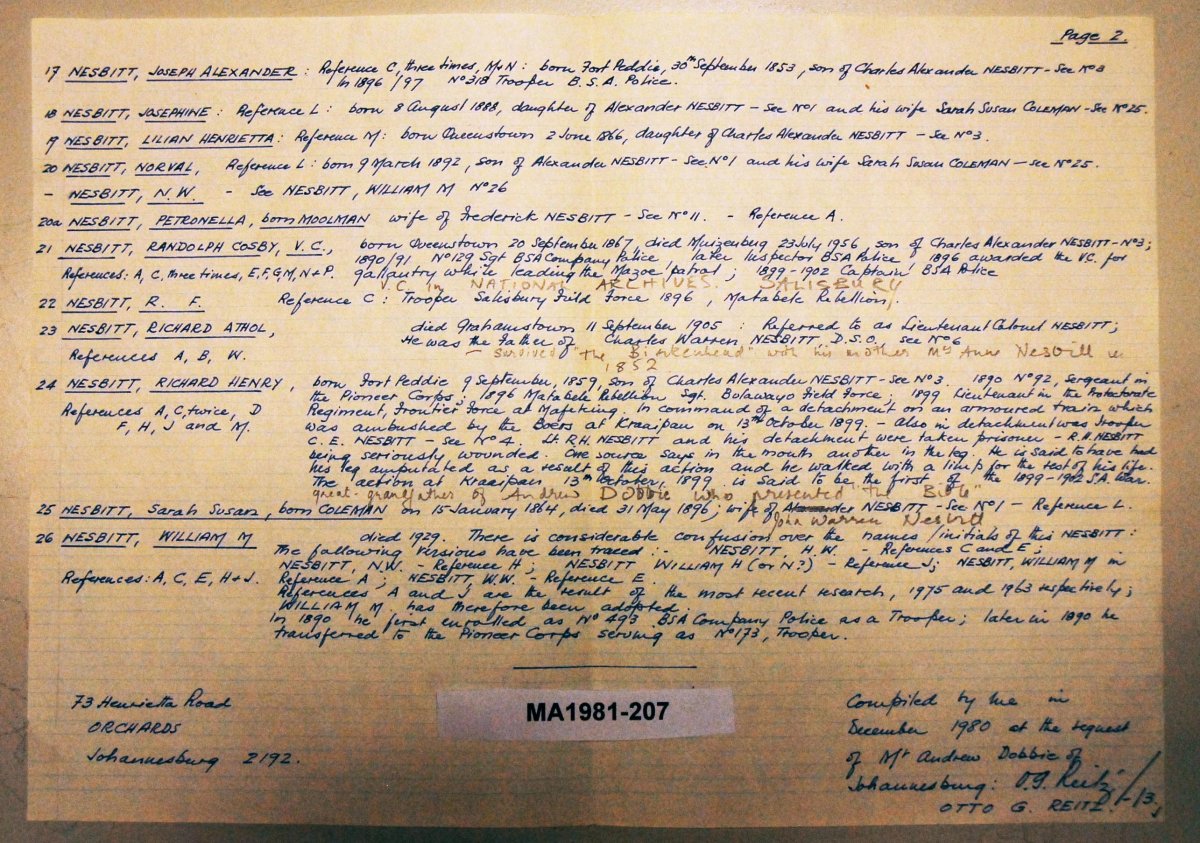 Page 2.
17 NESBITT, JOSEPH ALEXANDER : Reference C, three times, M+N : born Fort Peddie, 30th September 1853, son of Charles Alexander NESBITT - See No 3
In 1896/97 No 318 Trooper B.S.A. Police.
18 NESBITT, JOSEPHINE : Reference L : born 8 August 1888, daughter of Alexander NESBITT - See No 1 and his wife Sarah Susan COLEMAN - See No 25.
19 NESBITT, LILIAN HENRIETTA : Reference M : born Queenstown 2 June 1866, daughter of Charles Alexander NESBITT - See No 3.
20 NESBITT, NORVAL, Reference L : born 9 March 1892, son of Alexander NESBITT - See No 1 and his wife Sarah Susan COLEMAN - see No 25.
- NESBITT, N.W. - See NESBITT, WILLIAM M No 26
20a NESBITT, PETRONELLA, born MOOLMAN wife of Frederick NESBITT - See No 11. - Reference A.
21 NESBITT, RANDOLPH COSBY, V.C., born Queenstown 20 September 1867, died Muizenburg 23 July 1956, son of Charles Alexander NESBITT - No 3;
1890/91 No 129 Sgt BSA Company Police, later Inspector BSA Police : 1896 awarded the V.C. for
References: A, C, three times, E, F, G, M, N + P. gallantry while leading the Mazoe patrol ; 1899-1902 Captain BSA Police
V.C. in NATIONAL ARCHIVES. SALISBURY
22 NESBITT, R. F. Reference C : Trooper Salisbury Field Force 1896, Matabele Rebellion,
23 NESBITT, RICHARD ATHOL, died Grahamstown 11 September 1905 : Referred to as Lieutenant Colonel NESBITT;
He was the Father of Charles Warren NESBITT, D.S.O. see No 6
References A, B, W. - survived "The Birkenhead" with his mother Mrs Anne Nesbitt in
1852
24 NESBITT, RICHARD HENRY, born Fort Peddie 9 September, 1859, son of Charles Alexander NESBITT - See No 3. 1890 No 92, Sergeant in
the Pioneer Corps; 1896 Matabele Rebellion Sgt. Bulawayo Field Force; 1899 Lieutenant in the Protectorate
References A, C, twice, D Regiment, Frontier Force at Mafeking. In command of a detachment on an armoured train which
F, H, J and M. was ambushed by the Boers at Kraaipan on 13th October 1899. - Also in detachment was Trooper
C. E. NESBITT - see No 4. Lt. R.H. NESBITT and his detachment were taken prisoner - R.H. NESBITT
being seriously wounded. One source says in the mouth another in the leg. He is said to have had
his leg amputated as a result of this action and he walked with a limp for the rest of his life.
The action at Kraaipan 13th October, 1899 is said to be the first of the 1899-1902 S.A. War.
great-grandfather of Andrew Dobbie who presented "the Bible"
25 NESBITT, Sarah Susan, born COLEMAN on 15 January 1864, died 31 May 1896; wife of Alexander NESBITT - See No 1 - Reference L.
John Warren Nesbitt
26 NESBITT, WILLIAM M died 1929. There is considerable confusion over the names/initials of this NESBITT :
The following versions have been traced :- NESBITT, H.W. - References C and E;
NESBITT, N.W. - Reference H; NESBITT WILLIAM H (or N?) - Reference J; NESBITT, WILLIAM M in
References: A, C, E, H + J. Reference A; NESBITT, W.W. - Reference E.
References A and J are the result of the most recent research, 1975 and 1963 respectively;
WILLIAM M. has therefore been adopted.
In 1890 he first enrolled as No 493 BSA Company Police as a Trooper; later in 1890 he
transferred to the Pioneer Corps serving as No 173, Trooper.
73 Henrietta Road
ORCHARDS
Johannesburg 2192.
MA1981-207
Compiled by me in
December 1980 at the request
of Mr Andrew Dobbie of
Johannesburg : O.G. Reitz
OTTO G. REITZ.